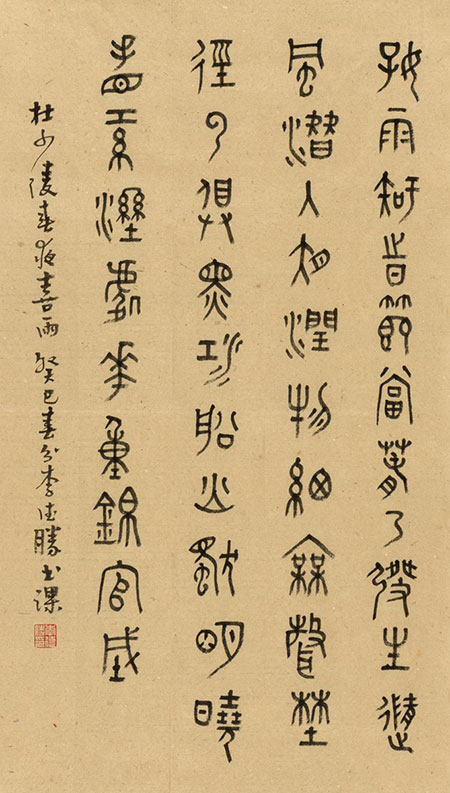 好雨知時節當春乃發生隨
風潛入夜潤物細無聲野
徑雲俱黑江船火獨明曉
看紅濕處花重錦官城
杜少陵春夜喜雨 癸巳春分李德勝書課